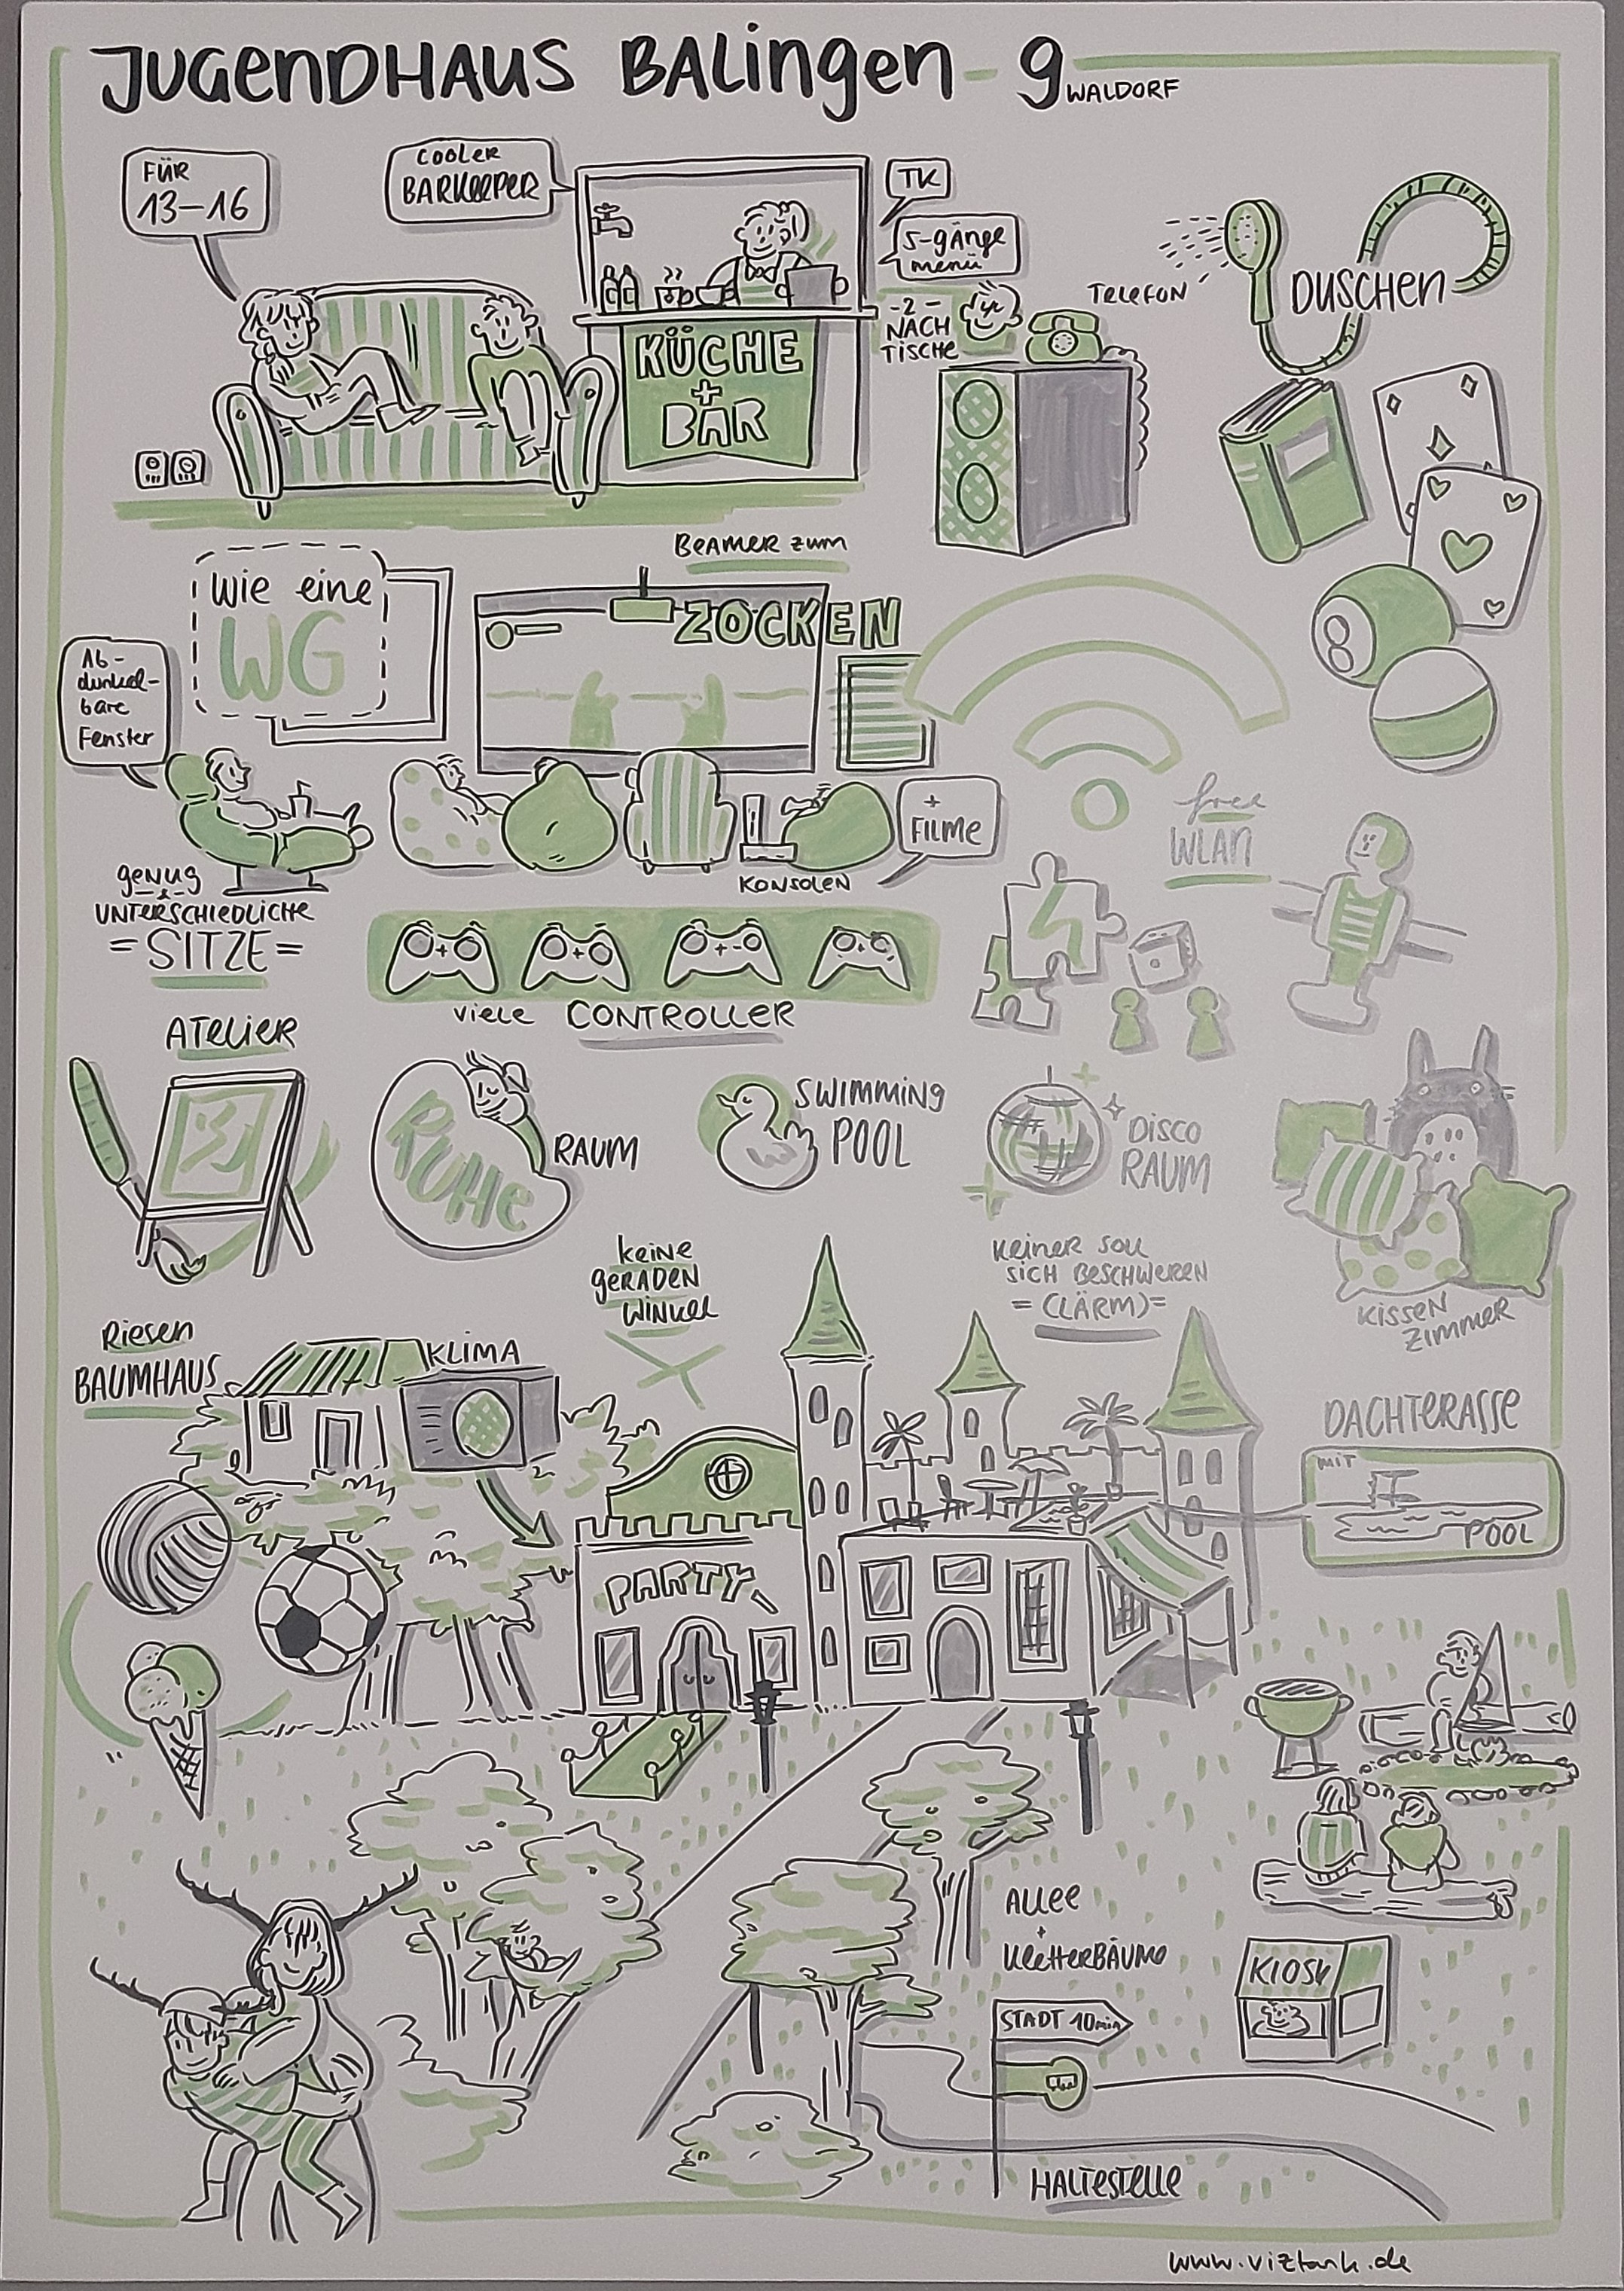 JUGENDHAUS BALingen - 9 WALDORF
FÜR
13-16
COOLER
BARKEEPER
TK
5-gänge
menü
-2-
NACH
TISCHE
TELEFON
DUSCHEN
KÜCHE
+
BAR
Wie eine
WG
BEAMER zum
ZOCKEN
Ab-
dunkel-
bare
Fenster
+
FILME
KONSOLEN
free
WLAN
genug
&
UNTERSCHIEDLICHE
=SITZE=
viele CONTROLLER
ATELIER
RUHE
RAUM
SWIMMING
POOL
DISCO
RAUM
KISSEN
ZIMMER
keine
geraden
Winkel
Keiner soll
sich beschweren
=(LÄRM)=
Riesen
BAUMHAUS
KLIMA
PARTY
DACHTERASSE
MIT
POOL
ALLEE
+
KletterBÄUME
KIOSK
STADT 10min
H
HALTESTELLE
www.viztank.de